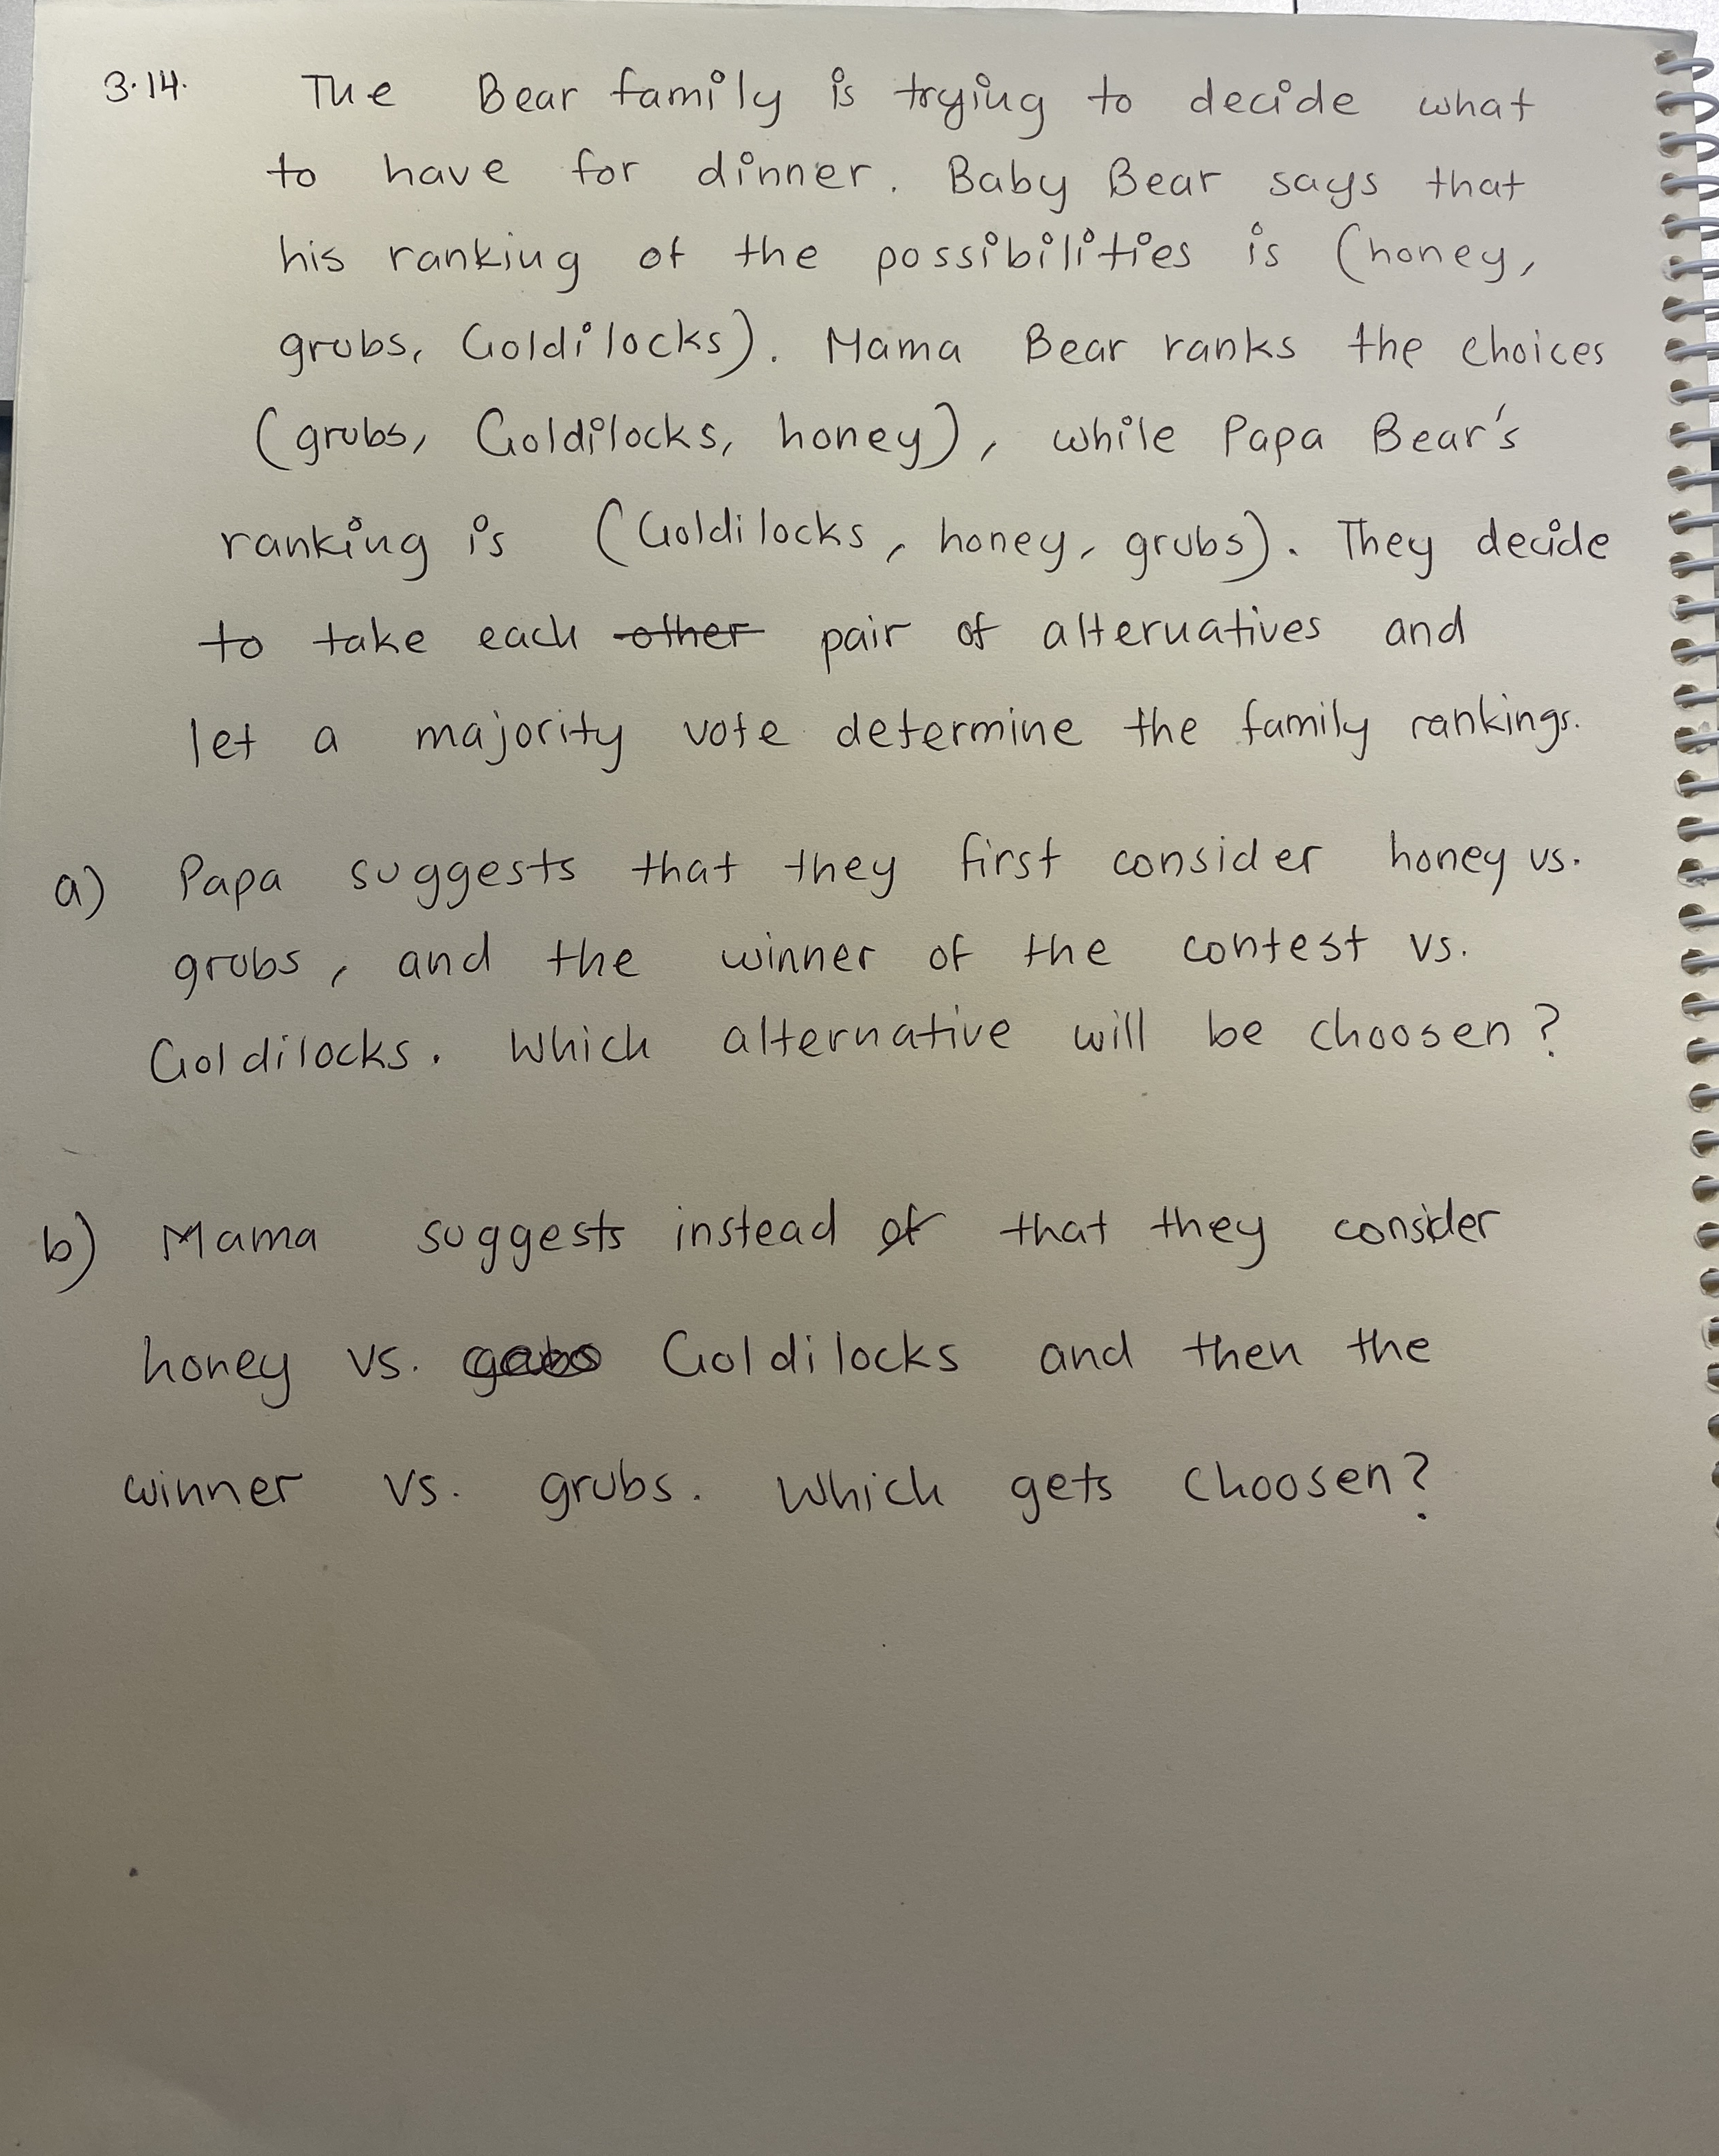 3.14. The Bear family is trying to decide what
to have for dinner. Baby Bear says that
his ranking of the possibilities is (honey,
grubs, Goldilocks). Mama Bear ranks the choices
(grubs, Goldilocks, honey), while Papa Bear's
ranking is (Goldilocks, honey, grubs). They decide
to take each other pair of alternatives and
let a majority vote determine the family rankings.
a) Papa suggests that they first consider honey vs.
grubs, and the winner of the contest vs.
Goldilocks. Which alternative will be choosen?
b) Mama suggests instead of that they consider
honey vs. Goldilocks and then the
winner vs. grubs. Which gets choosen?